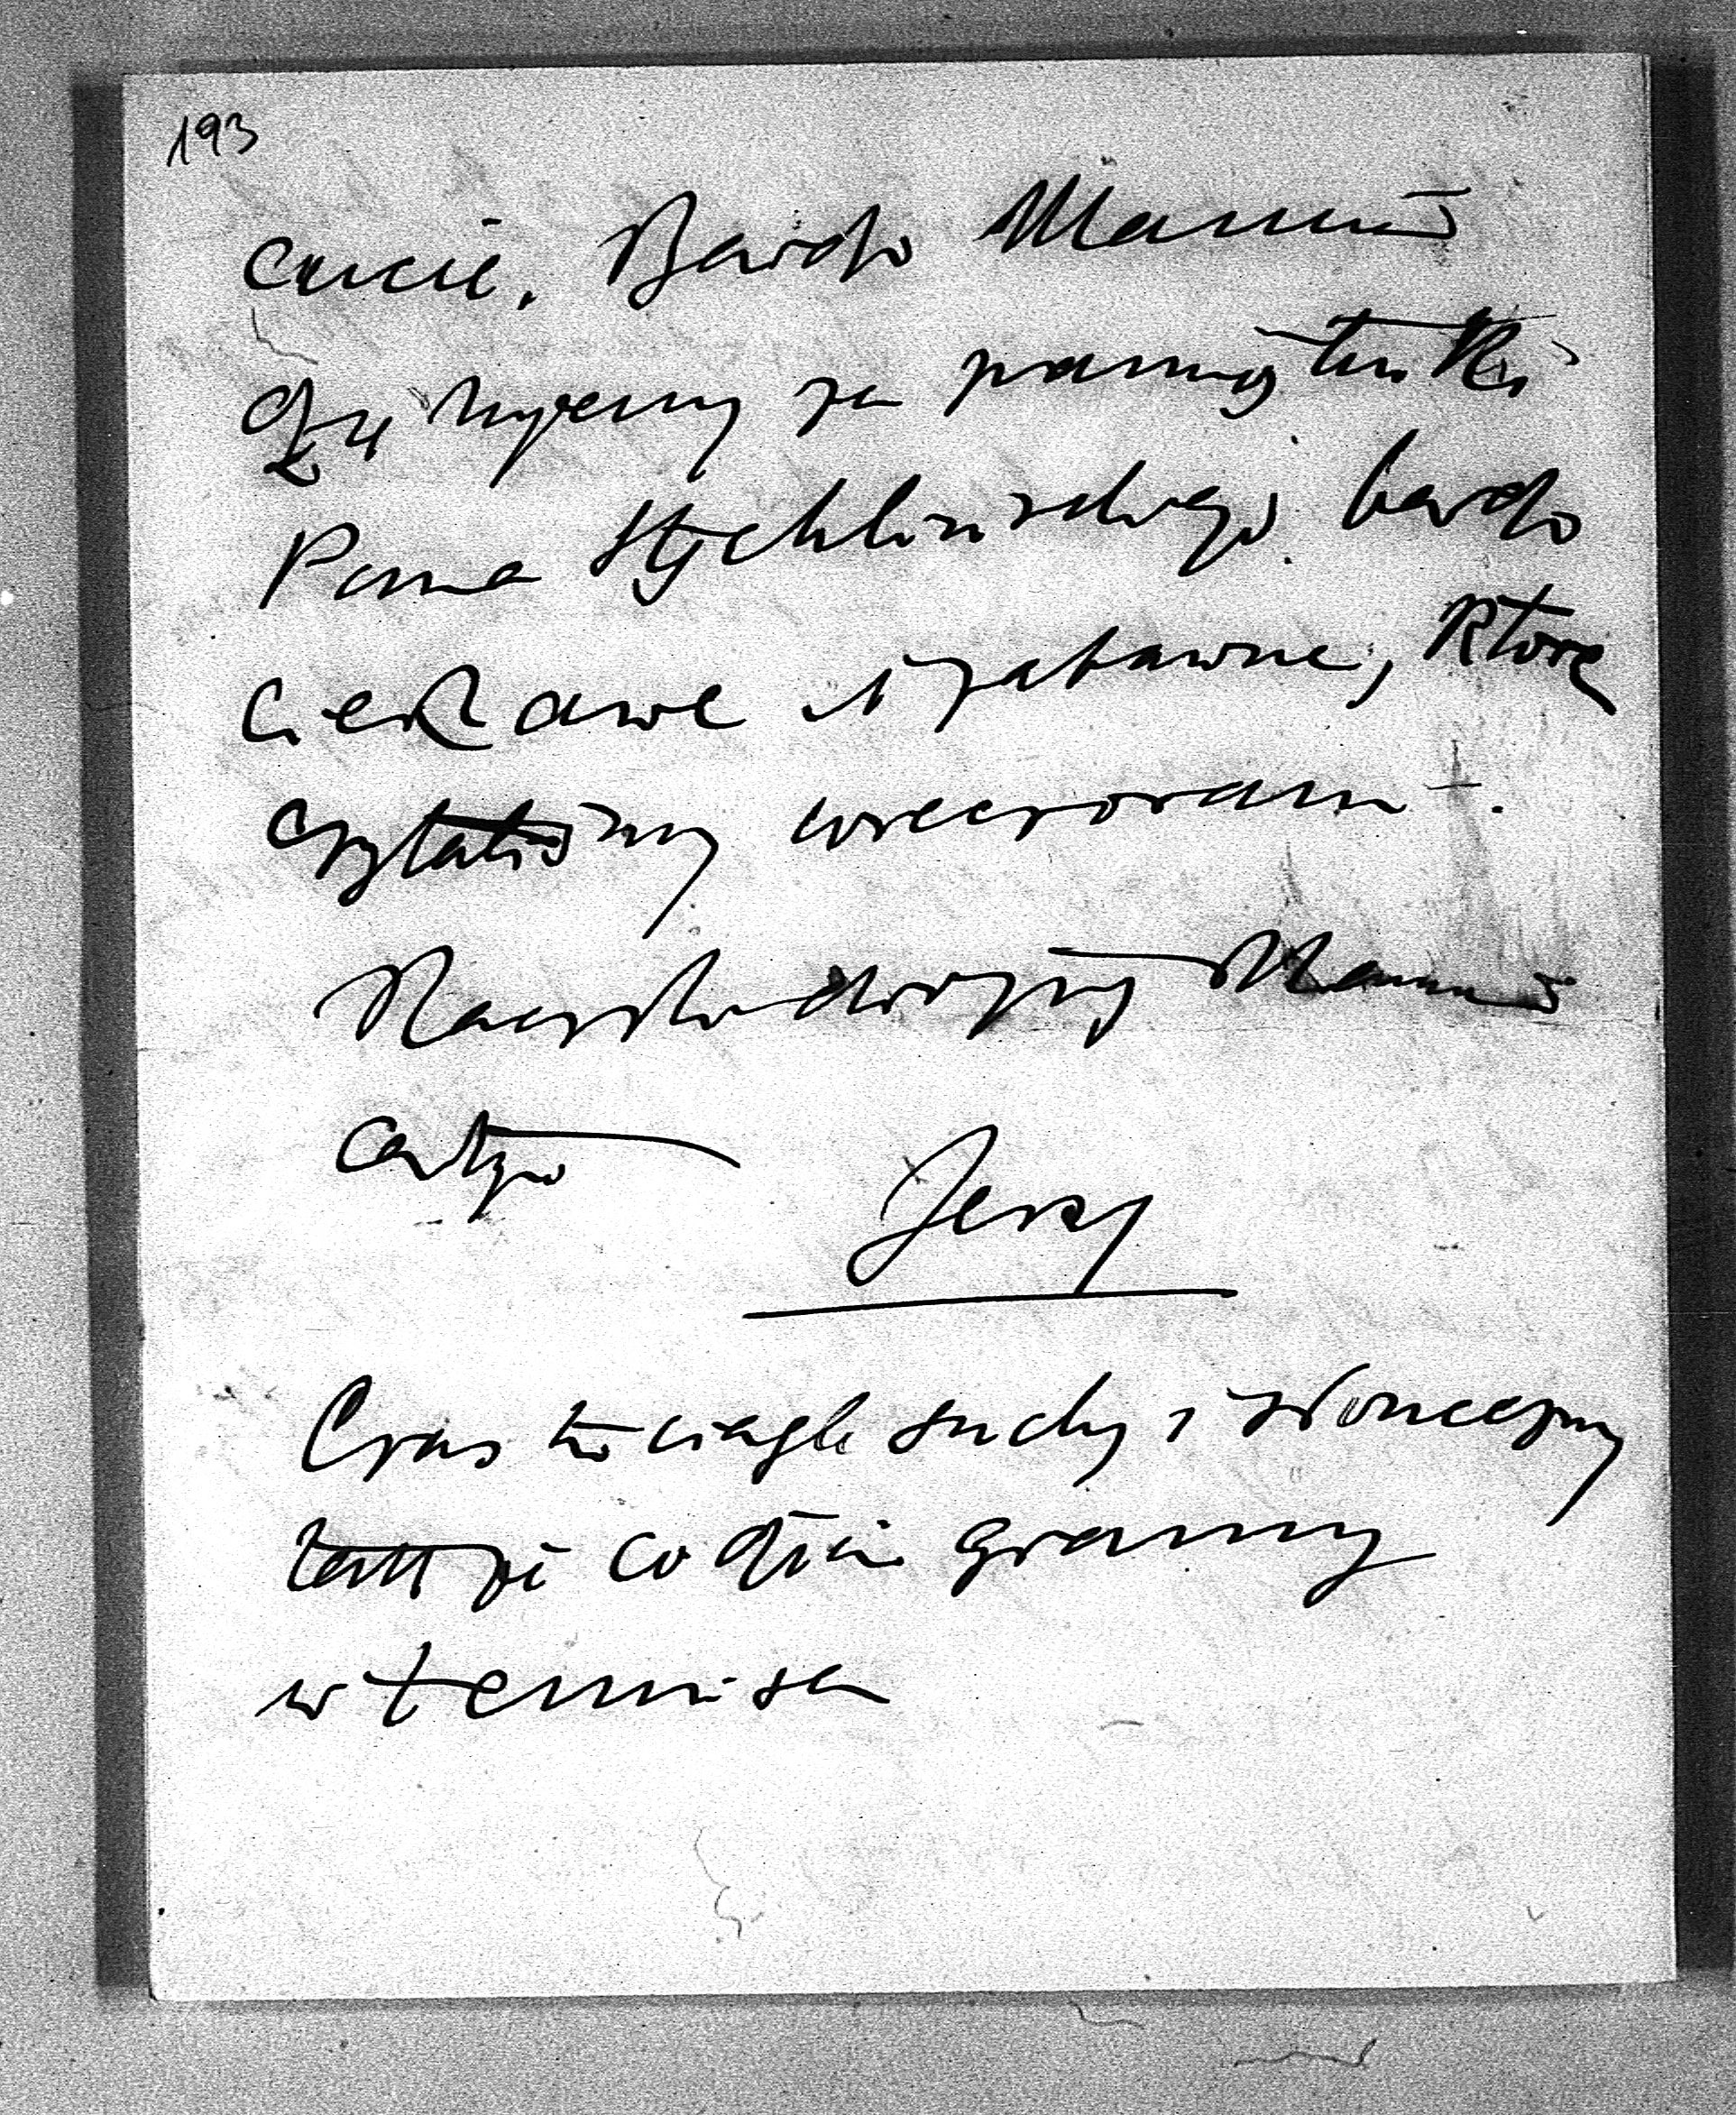 193
cucie. Bardo Mamu
dziękujemy za pamiętniki
Pana bardo
ciekawe i zabawne, które
czytaliśmy wieczorami.
Rączki drogiej Mamu
całuję
Jerzy
Czas tu ciągle suchy i słoneczny
tak że co dzień gramy
w tennisa